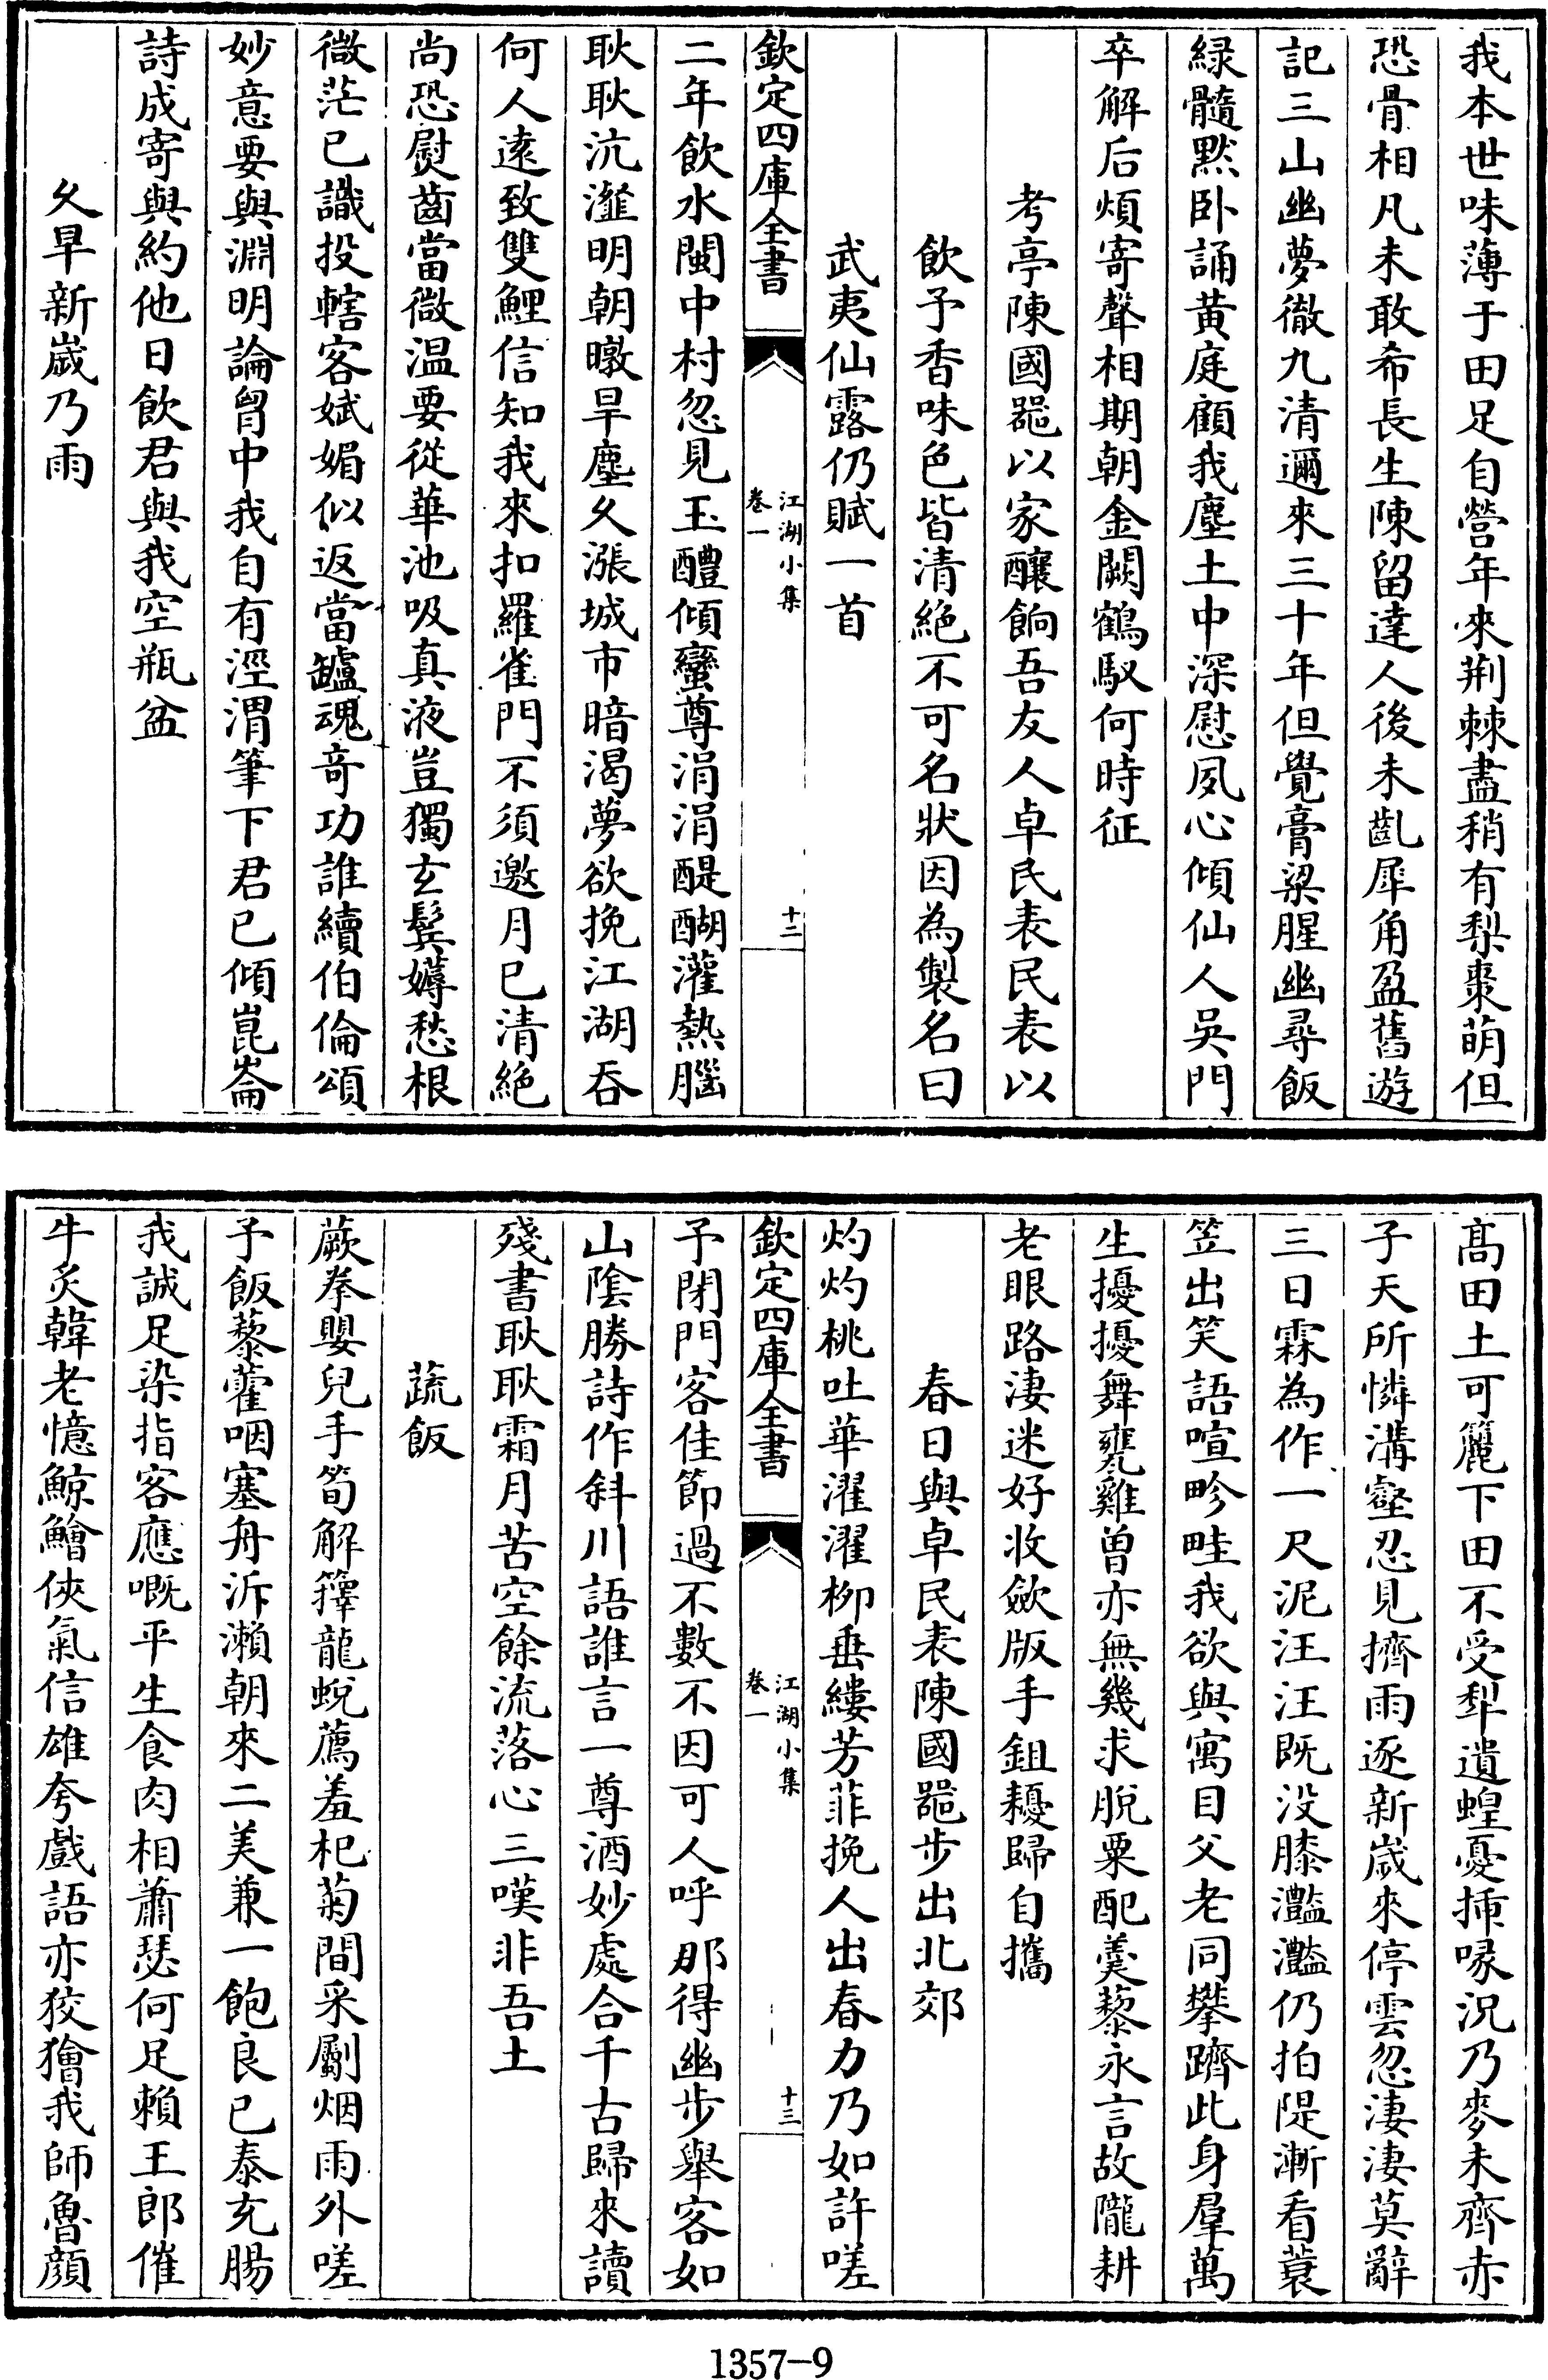 我本世味薄于田足自營年來荆棘盡稍有梨棗萌但
恐骨相凡未敢希長生陳留達人後未齓犀角盈舊遊
記三山幽夢徹九清邇來三十年但覺膏粱腥幽尋飯
緑髓黙卧誦黄庭顧我塵土中深慰夙心傾仙人吳門
卒解后煩寄聲相期朝金闕鶴馭何時征
考亭陳國噐以家釀餉吾友人卓民表民表以
飲予香味色皆清絶不可名狀因為製名曰
武夷仙露仍賦一首
欽定四庫全書
江湖小集
卷一
十二
二年飲水閩中村忽見玉醴傾蠻尊涓涓醍醐灌熱腦
耿耿沆瀣明朝暾旱塵久漲城市暗渴夢欲挽江湖吞
何人逺致雙鯉信知我來扣羅雀門不須邀月已清絶
尚恐熨齒當微温要從華池吸真液豈獨玄鬂薅愁根
微茫已識投轄客斌媚似返當罏魂竒功誰續伯倫頌
妙意要與淵明論胷中我自有涇渭筆下君已傾崑崙
詩成寄與約他日飲君與我空瓶盆
久旱新歲乃雨
髙田土可簏下田不受犁遺蝗憂挿喙況乃麥未齊赤
子天所憐溝壑忍見擠雨逐新歲來停雲忽淒淒莫辭
三日霖為作一尺泥汪汪既没膝灩灩仍拍隄漸看蓑
笠出笑語喧畛畦我欲與寓目父老同攀躋此身羣萬
生擾擾舞甕雞曾亦無幾求脱粟配羮藜永言故隴耕
老眼路淒迷好收歛版手鉏耰歸自攜
春日與卓民表陳國噐步出北郊
灼灼桃吐華濯濯栁垂縷芳菲挽人出春力乃如許嗟
欽定四庫全書
江湖小集
卷一
十三
予閉門客佳節過不數不因可人呼那得幽步舉客如
山隂勝詩作斜川語誰言一尊酒妙處合千古歸來讀
殘書耿耿霜月苦空餘流落心三嘆非吾土
蔬飯
蕨拳嬰兒手筍解籜龍蛻薦羞杞菊間采劚烟雨外嗟
予飯藜藿咽塞舟泝瀨朝來二美兼一飽良已泰充腸
我誠足染指客應嘅平生食肉相蕭瑟何足賴王郎催
牛炙韓老憶鯨鱠俠氣信雄夸戲語亦狡獪我師魯顔
1357-9